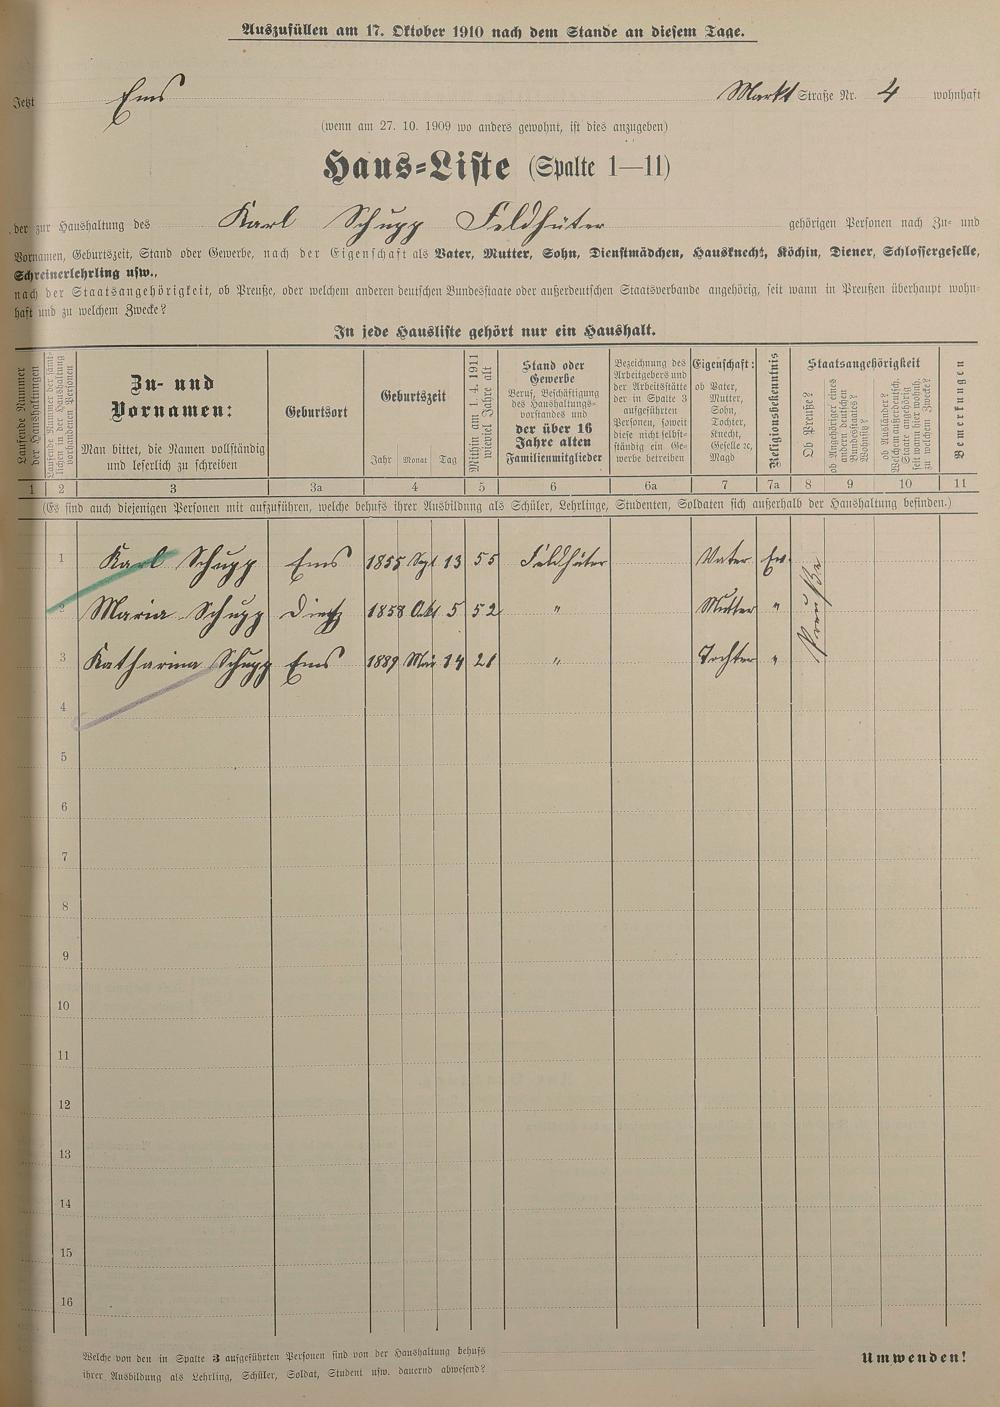 Auszufüllen am 17. Oktober 1910 nach dem Stande an diesem Tage.
Jetzt Ems Markt Straße Nr. 4 wohnhaft
(wenn am 27. 10. 1909 wo anders gewohnt, ist dies anzugeben)
Haus-Liste (Spalte 1—11)
der zur Haushaltung des Karl Schupp Feldhüter gehörigen Personen nach Zu- und
Vornamen, Geburtszeit, Stand oder Gewerbe, nach der Eigenschaft als Vater, Mutter, Sohn, Dienstmädchen, Hausknecht, Köchin, Diener, Schlossergeselle,
Schreinerlehrling usw.,
nach der Staatsangehörigkeit, ob Preuße, oder welchem anderen deutschen Bundesstaate oder außerdeutschen Staatsverbande angehörig, seit wann in Preußen überhaupt wohn-
haft und zu welchem Zwecke?
In jede Hausliste gehört nur ein Haushalt.
Laufende Nummer
der Haushaltungen
Laufende Nummer der sämt-
lichen in der Haushaltung
vorhandenen Personen
Zu- und
Vornamen:
Man bittet, die Namen vollständig
und leserlich zu schreiben
Geburtsort
Geburtszeit
Jahr Monat Tag
Mithin am 1. 4. 1911
wieviel Jahre alt
Stand oder
Gewerbe
Beruf, Beschäftigung
des Haushaltungs-
vorstandes und
der über 16
Jahre alten
Familienmitglieder
Bezeichnung des
Arbeitgebers und
der Arbeitsstätte
der in Spalte 3
aufgeführten
Personen, soweit
diese nicht selbst-
ständig ein Ge-
werbe betreiben
Eigenschaft:
ob Vater,
Mutter,
Sohn,
Tochter,
Knecht,
Geselle ꝛc,
Magd
Religionsbekenntnis
Staatsangehörigkeit
Ob Preuße?
ob Angehöriger eines
andern deutschen
Bundesstaates?
Wohnsitz?
ob Ausländer?
Welchem außerdeutsch.
Staate angehörig
seit wann hier wohnh.
zu welchem Zwecke?
Bemerkungen
1 2 3 3a 4 5 6 6a 7 7a 8 9 10 11
(Es sind auch diejenigen Personen mit aufzuführen, welche behufs ihrer Ausbildung als Schüler, Lehrlinge, Studenten, Soldaten sich außerhalb der Haushaltung befinden.)
1 Karl Schupp Ems 1855 Spt 13 55 Feldhüter Vater Ev.
2 Maria Schupp Dietz 1858 Okt 5 52 " Mutter "
3 Katharina Schupp Ems 1889 Mai 14 21 " Tochter "
Preuße
4
5
6
7
8
9
10
11
12
13
14
15
16
Welche von den in Spalte 3 aufgeführten Personen sind von der Haushaltung behufs
ihrer Ausbildung als Lehrling, Schüler, Soldat, Student usw. dauernd abwesend?
Umwenden!